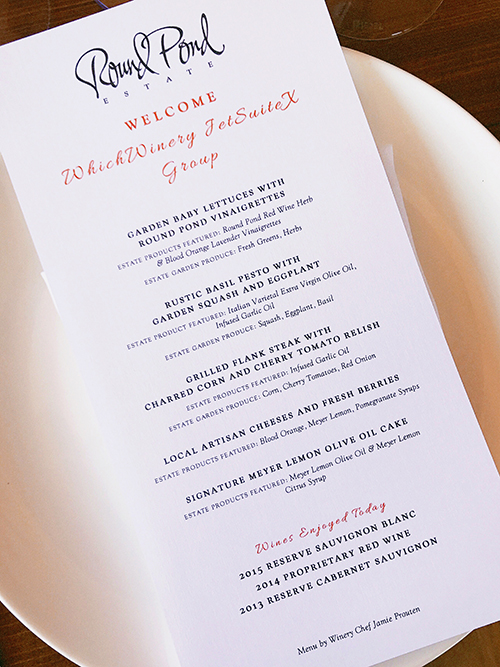 Round Pond
ESTATE
WELCOME
WhichWinery JetSuiteX
Group
GARDEN BABY LETTUCES WITH
ROUND POND VINAIGRETTES
ESTATE PRODUCTS FEATURED: Round Pond Red Wine Herb
& Blood Orange Lavender Vinaigrettes
ESTATE GARDEN PRODUCE: Fresh Greens, Herbs
RUSTIC BASIL PESTO WITH
GARDEN SQUASH AND EGGPLANT
ESTATE PRODUCT FEATURED: Italian Varietal Extra Virgin Olive Oil,
Infused Garlic Oil
ESTATE GARDEN PRODUCE: Squash, Eggplant, Basil
GRILLED FLANK STEAK WITH
CHARRED CORN AND CHERRY TOMATO RELISH
ESTATE PRODUCTS FEATURED: Infused Garlic Oil
ESTATE GARDEN PRODUCE: Corn, Cherry Tomatoes, Red Onion
LOCAL ARTISAN CHEESES AND FRESH BERRIES
ESTATE PRODUCTS FEATURED: Blood Orange, Meyer Lemon, Pomegranate Syrups
SIGNATURE MEYER LEMON OLIVE OIL CAKE
ESTATE PRODUCTS FEATURED: Meyer Lemon Olive Oil & Meyer Lemon
Citrus Syrup
Wines Enjoyed Today
2015 RESERVE SAUVIGNON BLANC
2014 PROPRIETARY RED WINE
2013 RESERVE CABERNET SAUVIGNON
Menu by Winery Chef Jamie Prouten